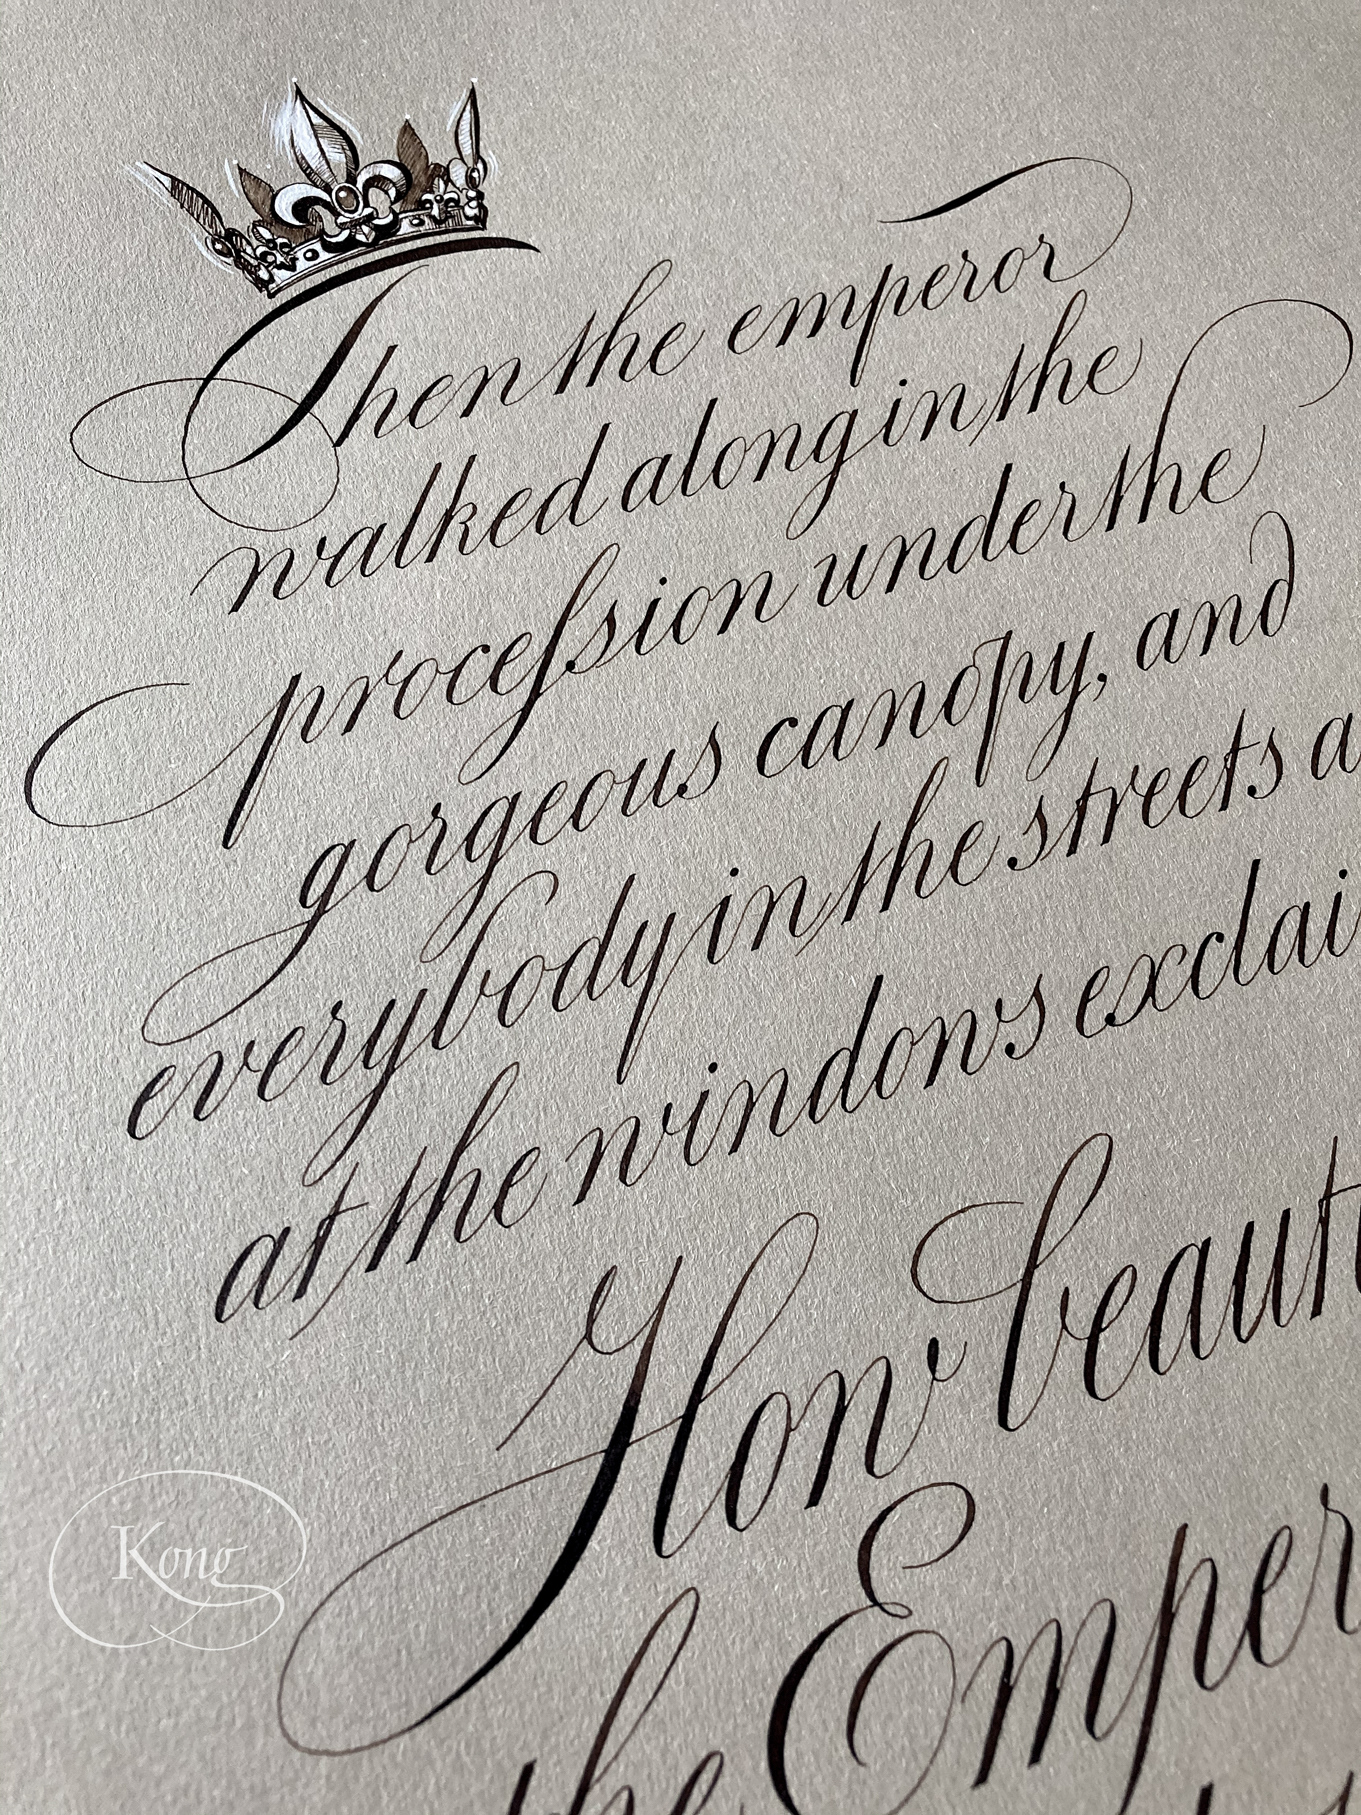 Then the emperor
walked along in the
procession under the
gorgeous canopy, and
everybody in the streets a
at the windows exclai
How beaut
the Emper
Kong